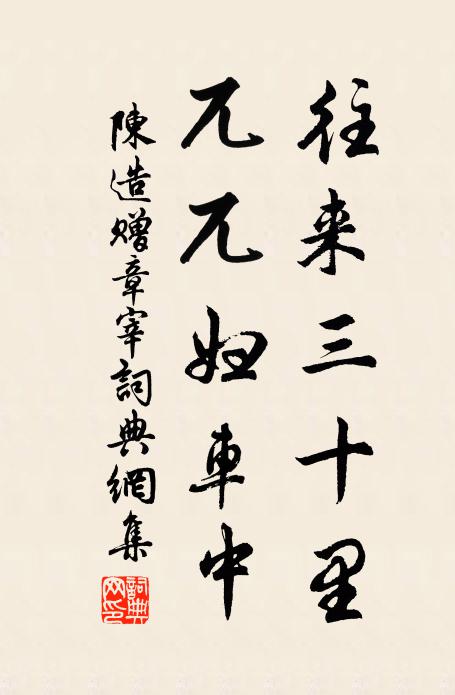 往来三十里
兀兀妇車中
陳造贈章宰詞典網集
詞典网印